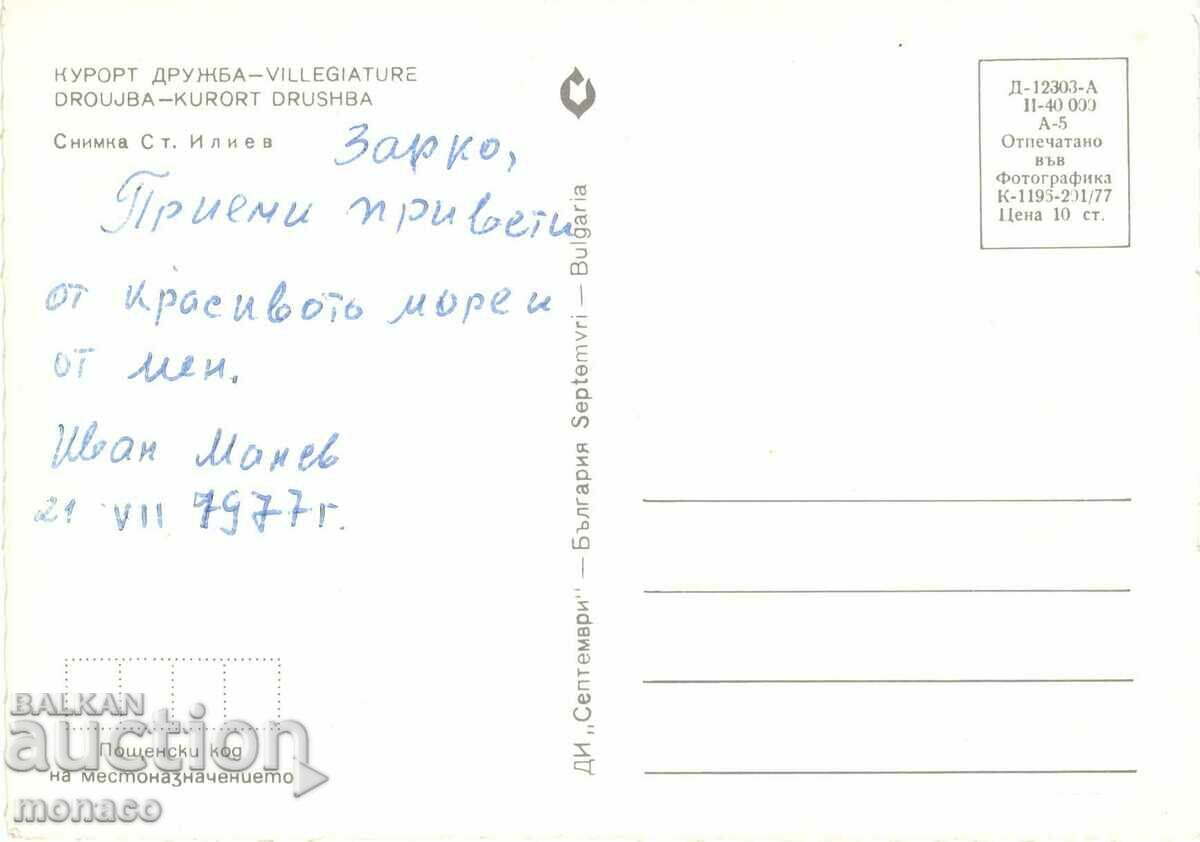 КУРОРТ ДРУЖБА—VILLEGIATURE
DROUJBA—KURORT DRUSHBA
Снимка Ст. Илиев
Зарко,
Приеми привети
от красивото море и
от мен.
Иван Манев
21 VII 1977 г.
Пощенски код
на местоназначението
ДИ „Септември" — България Septemvri — Bulgaria
Д-12303-А
II-40 000
А-5
Отпечатано
във
Фотографика
К-1195-201/77
Цена 10 ст.
BALKAN
auction
monaco